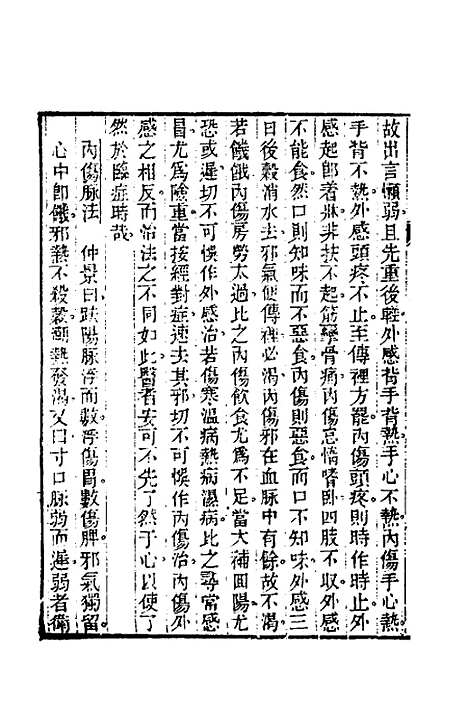 故出言懶弱且先重後輕外感背手背熱手心不熱內傷手心熱
手背不熱外感頭疼不止至傳裡方罷內傷頭疼則時作時止外
感起卽着牀非扶不起筋攣骨痛內傷怠惰嗜臥四肢不收外感
不能食然口則知味而不惡食內傷則惡食而口不知味外感三
日後穀消水去邪氣便傳裡必渴內傷邪在血脉中有餘故不渴
若饑餓內傷房勞太過比之內傷飮食尤爲不足當大補回陽尤
恐或遲切不可悞作外感治若傷寒溫病熱病濕病比之尋常感
冒尤爲險重當按經對症速去其邪切不可悞作內傷治內傷外
感之相反而治法之不同如此醫者安可不先了然于心以使了
然於臨症時哉
內傷脉法　仲景曰趺陽脉浮而數浮傷胃數傷脾邪氣獨留
心中卽饑邪熱不殺穀潮熱發渴又曰寸口脉弱而遲弱者衛